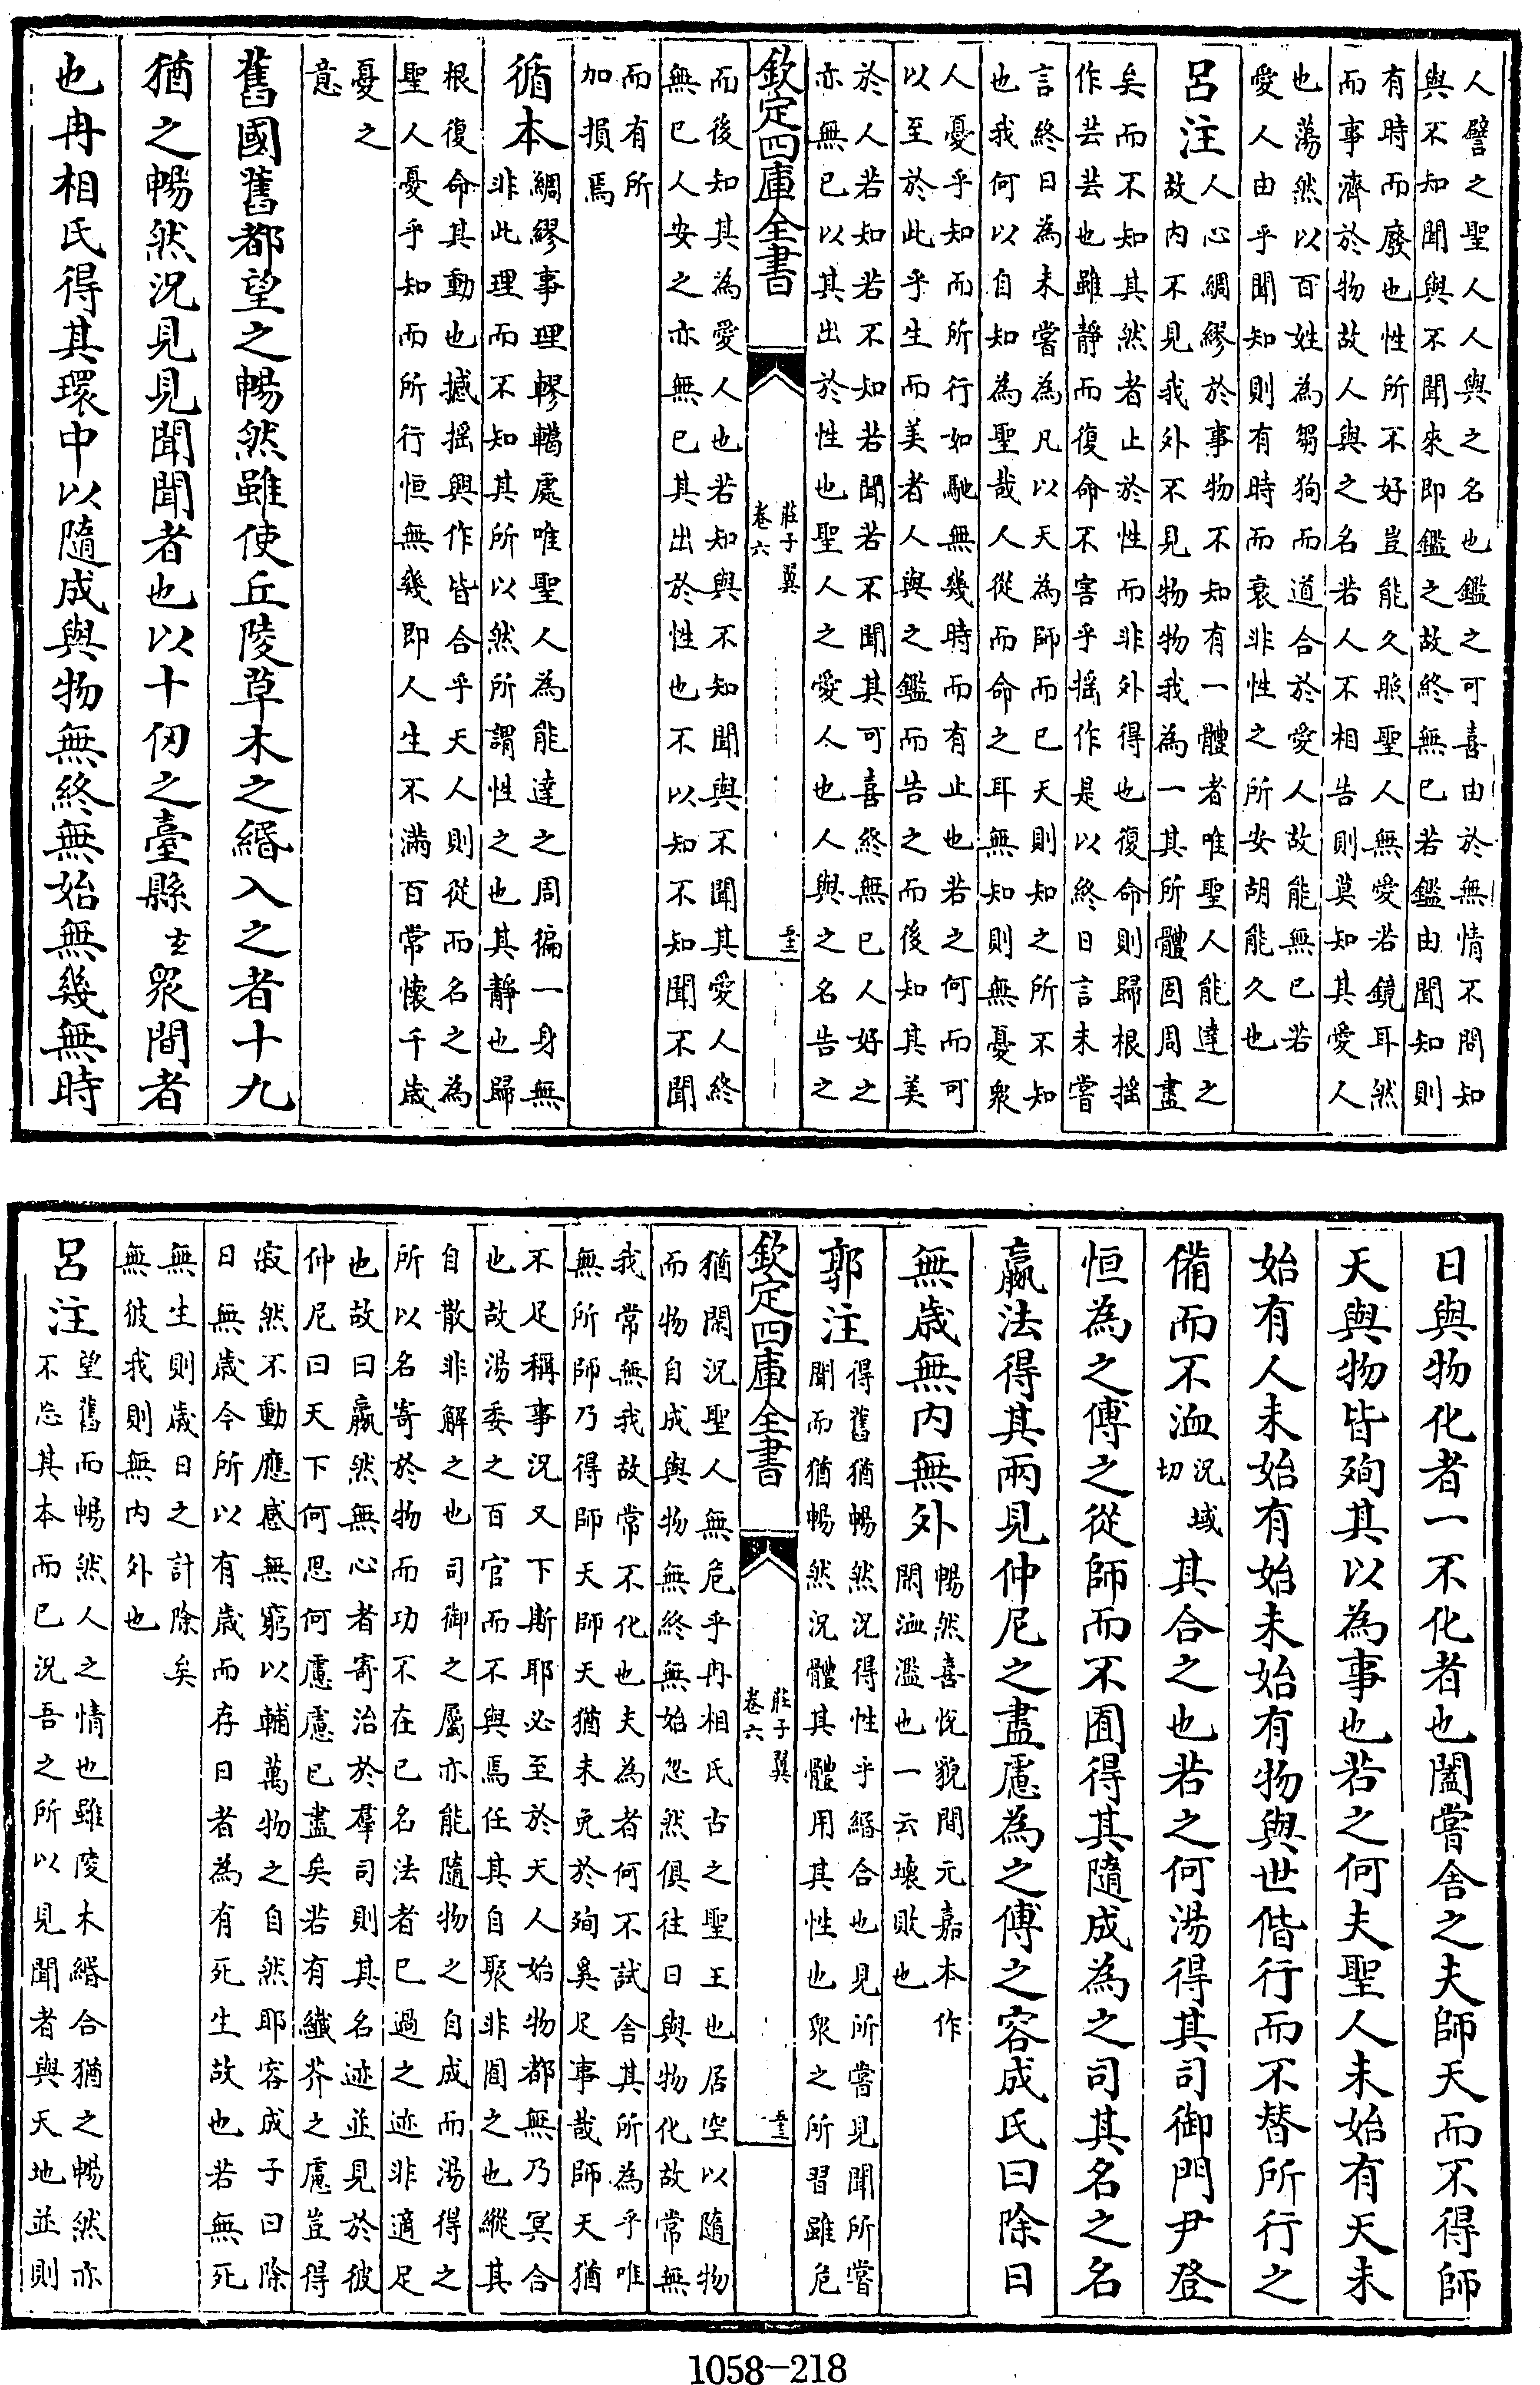 人譬之聖人人與之名也鑑之可喜由於無情不問知
與不知聞與不聞來即鑑之故終無已若鑑由聞知則
有時而廢也性所不好豈能久照聖人無愛若鏡耳然
而事濟於物故人與之名若人不相告則莫知其愛人
也蕩然以百姓為芻狗而道合於愛人故能無已若
愛人由乎聞知則有時而衰非性之所安胡能久也
呂注
人心綢繆於事物不知有一體者唯聖人能達之
故内不見我外不見物物我為一其所體固周盡
矣而不知其然者止於性而非外得也復命則歸根揺
作芸芸也雖靜而復命不害乎揺作是以終日言未嘗
言終日為未嘗為凡以天為師而已天則知之所不知
也我何以自知為聖哉人從而命之耳無知則無憂衆
人憂乎知而所行如馳無幾時而有止也若之何而可
以至於此乎生而美者人與之鑑而告之而後知其美
於人若知若不知若聞若不聞其可喜終無已人好之
亦無已以其出於性也聖人之愛人也人與之名告之
欽定四庫全書
莊子翼
卷六
五十三
而後知其為愛人也若知與不知聞與不聞其愛人終
無已人安之亦無已其出於性也不以知不知聞不聞
而有所
加損焉
循本
綢繆事理轇轕處唯聖人為能達之周徧一身無
非此理而不知其所以然所謂性之也其靜也歸
根復命其動也撼揺興作皆合乎天人則從而名之為
聖人憂乎知而所行恒無幾即人生不滿百常懷千歳
憂之
意
舊國舊都望之暢然雖使丘陵草木之緡入之者十九
猶之暢然況見見聞聞者也以十仞之臺縣玄衆間者
也冉相氏得其環中以隨成與物無終無始無幾無時
日與物化者一不化者也闔嘗舍之夫師天而不得師
天與物皆殉其以為事也若之何夫聖人未始有天未
始有人未始有始未始有物與世偕行而不替所行之
備而不洫況域切其合之也若之何湯得其司御門尹登
恒為之傅之從師而不囿得其隨成為之司其名之名
嬴法得其兩見仲尼之盡慮為之傅之容成氏曰除日
無歳無内無外
暢然喜悅貌間元嘉本作
閑洫濫也一云壞敗也
郭注
得舊猶暢然況得性乎緡合也見所嘗見聞所嘗
聞而猶暢然況體其體用其性也衆之所習雖危
猶閑況聖人無危乎冉相氏古之聖王也居空以隨物
而物自成與物無終無始忽然俱往日與物化故常無
我常無我故常不化也夫為者何不試舍其所為乎唯
無所師乃得師天師天猶未免於殉奚足事哉師天猶
不足稱事況又下斯耶必至於天人始物都無乃冥合
也故湯委之百官而不與焉任其自聚非囿之也縱其
自散非解之也司御之屬亦能隨物之自成而湯得之
所以名寄於物而功不在已名法者已過之迹非適足
也故曰嬴然無心者寄治於羣司則其名迹並見於彼
仲尼曰天下何思何慮慮已盡矣若有纎芥之慮豈得
寂然不動應感無窮以輔萬物之自然耶容成子曰除
日無歳今所以有歳而存日者為有死生故也若無死
無生則歳日之計除矣
無彼我則無内外也
呂注
望舊而暢然人之情也雖陵木緡合猶之暢然亦
不忘其本而已況吾之所以見聞者與天地並則
1058-218